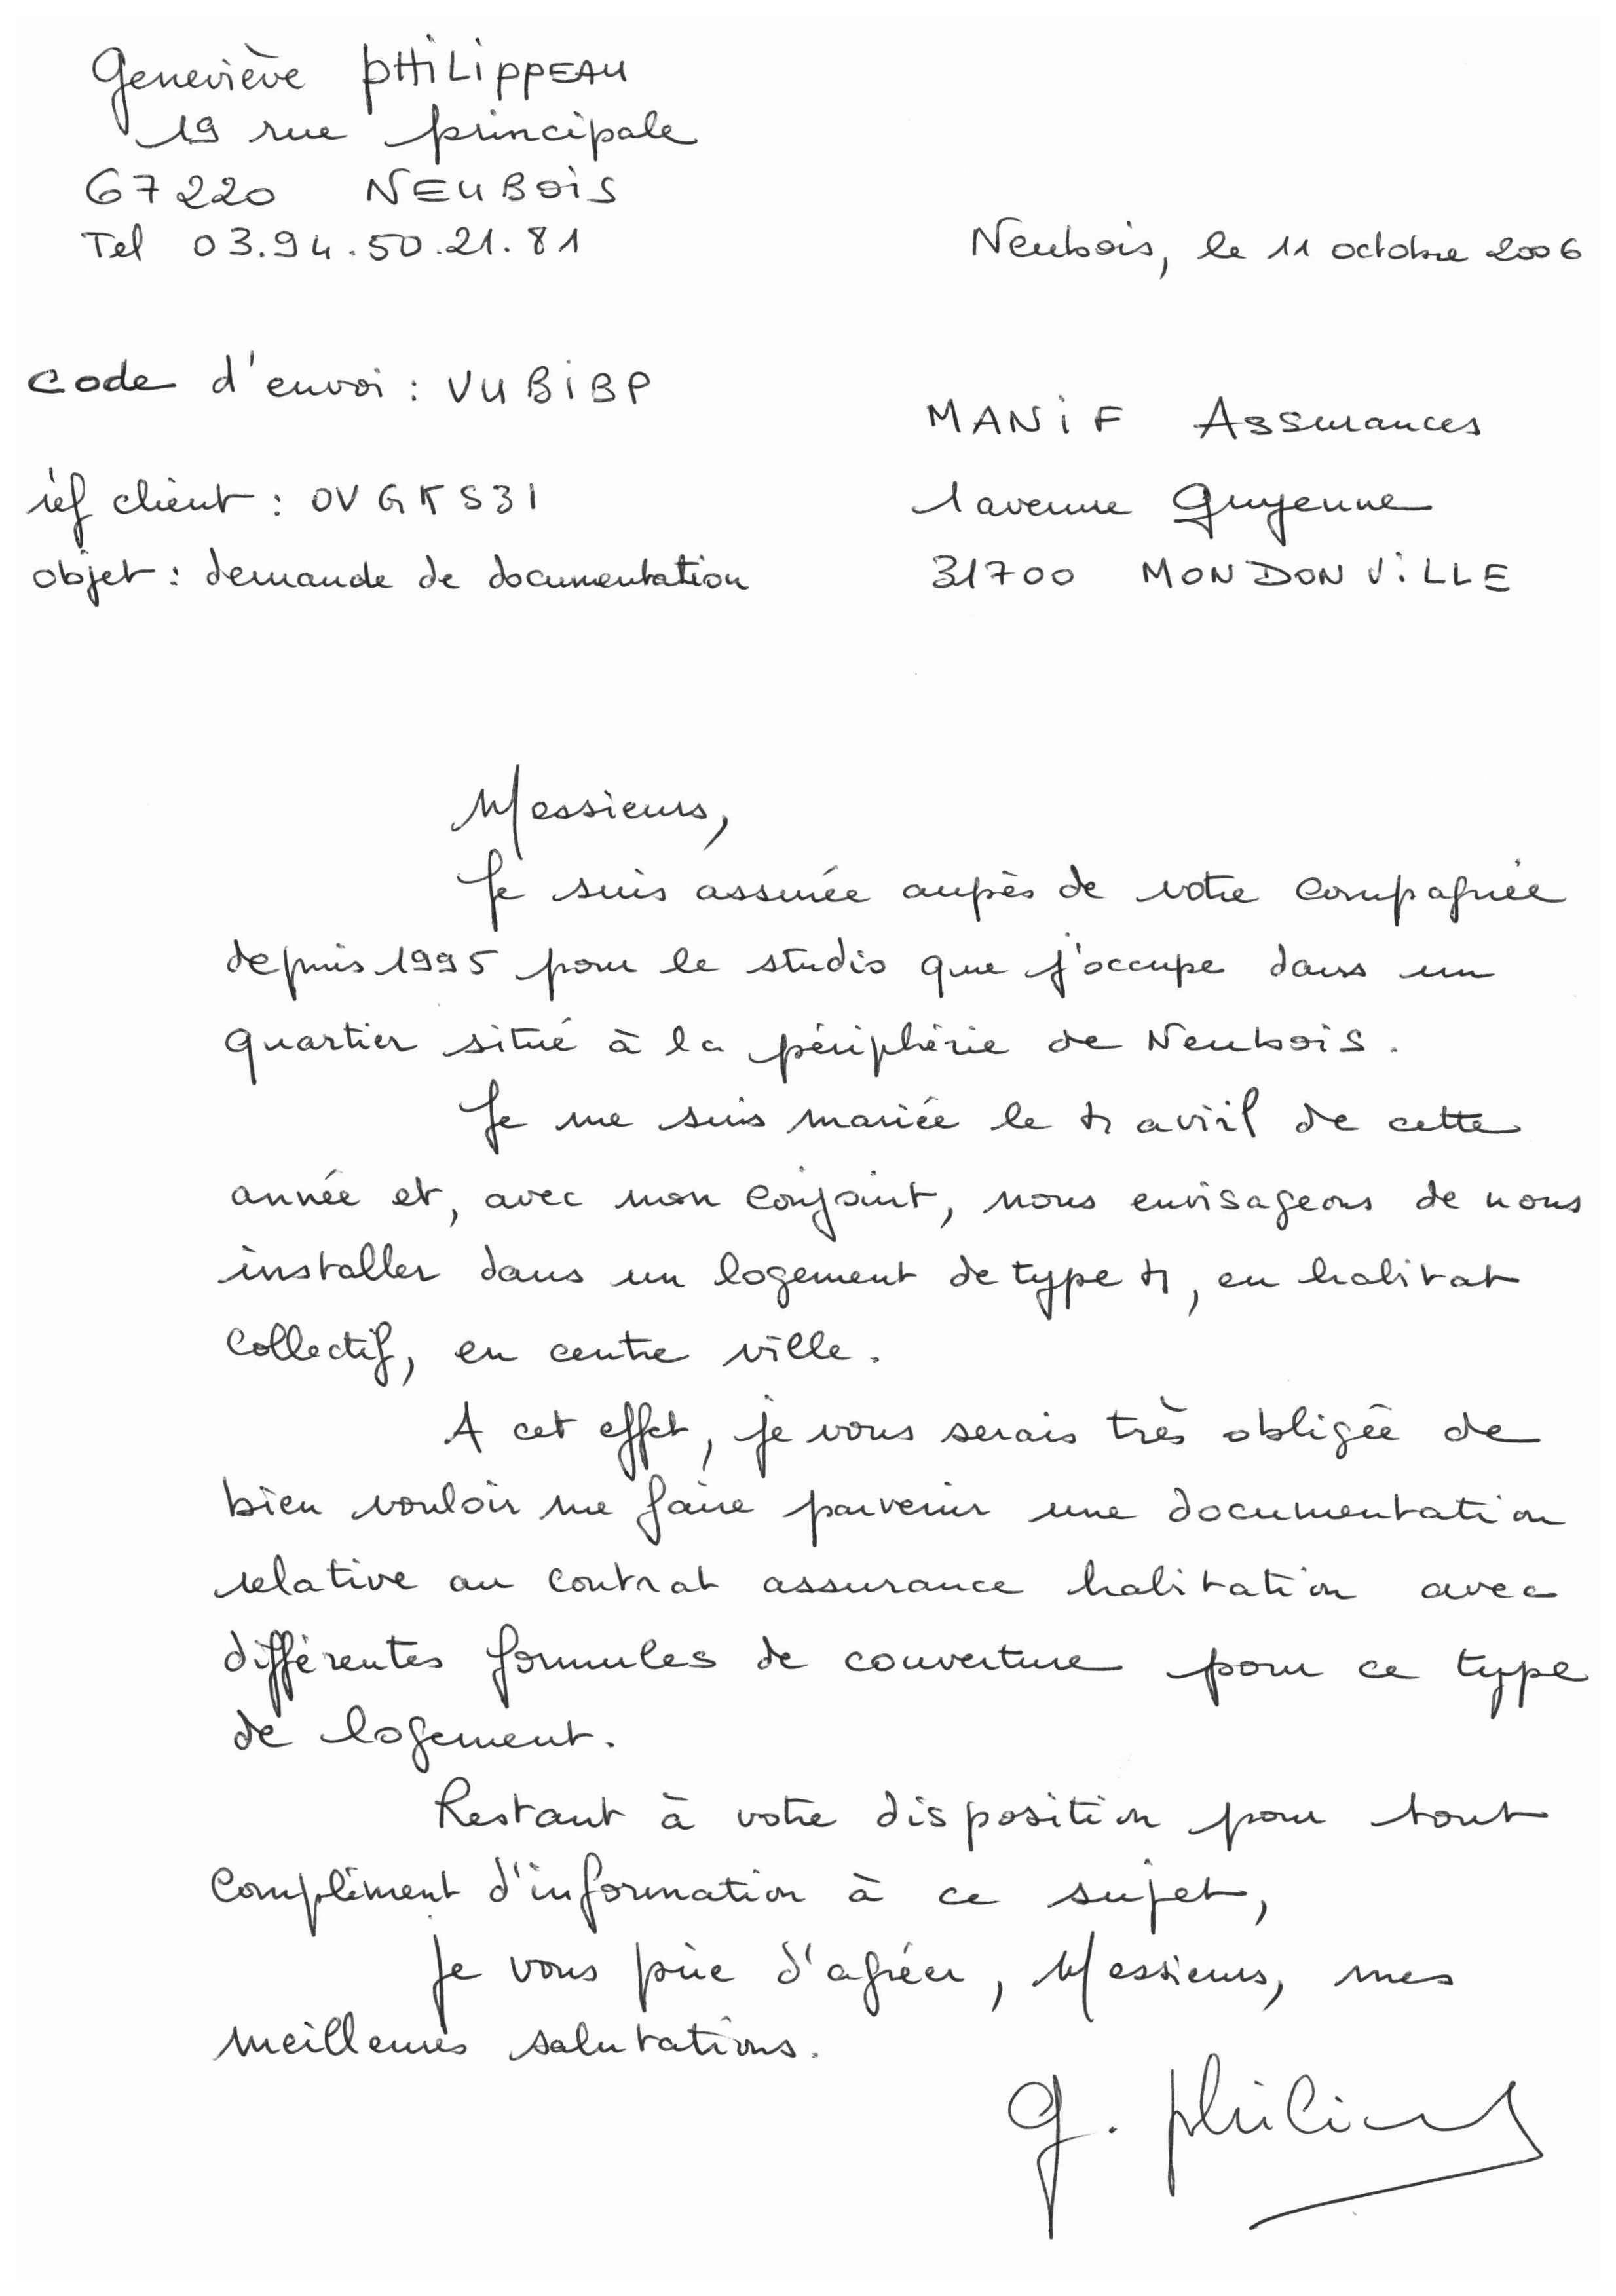 Geneviève PHILIPPEAU
19 rue principale
67220 NEUBOIS
Tel 03.94.50.21.81
Neubois, le 11 octobre 2006
Code d'envoi : VUBIBP
MANIF Assurances
réf client : OVGKS31
1 avenue Guyenne
objet : demande de documentation
31700 MONDONVILLE
Messieurs,
Je suis assurée auprès de votre compagnie
depuis 1995 pour le studio que j'occupe dans un
quartier situé à la périphérie de Neubois.
Je me suis mariée le 4 avril de cette
année et, avec mon conjoint, nous envisageons de nous
installer dans un logement de type 4, en habitat
collectif, en centre ville.
A cet effet, je vous serais très obligée de
bien vouloir me faire parvenir une documentation
relative au contrat assurance habitation avec
différentes formules de couverture pour ce type
de logement.
Restant à votre disposition pour tout
complément d'information à ce sujet,
Je vous prie d'agréer, Messieurs, mes
meilleures salutations.
G.